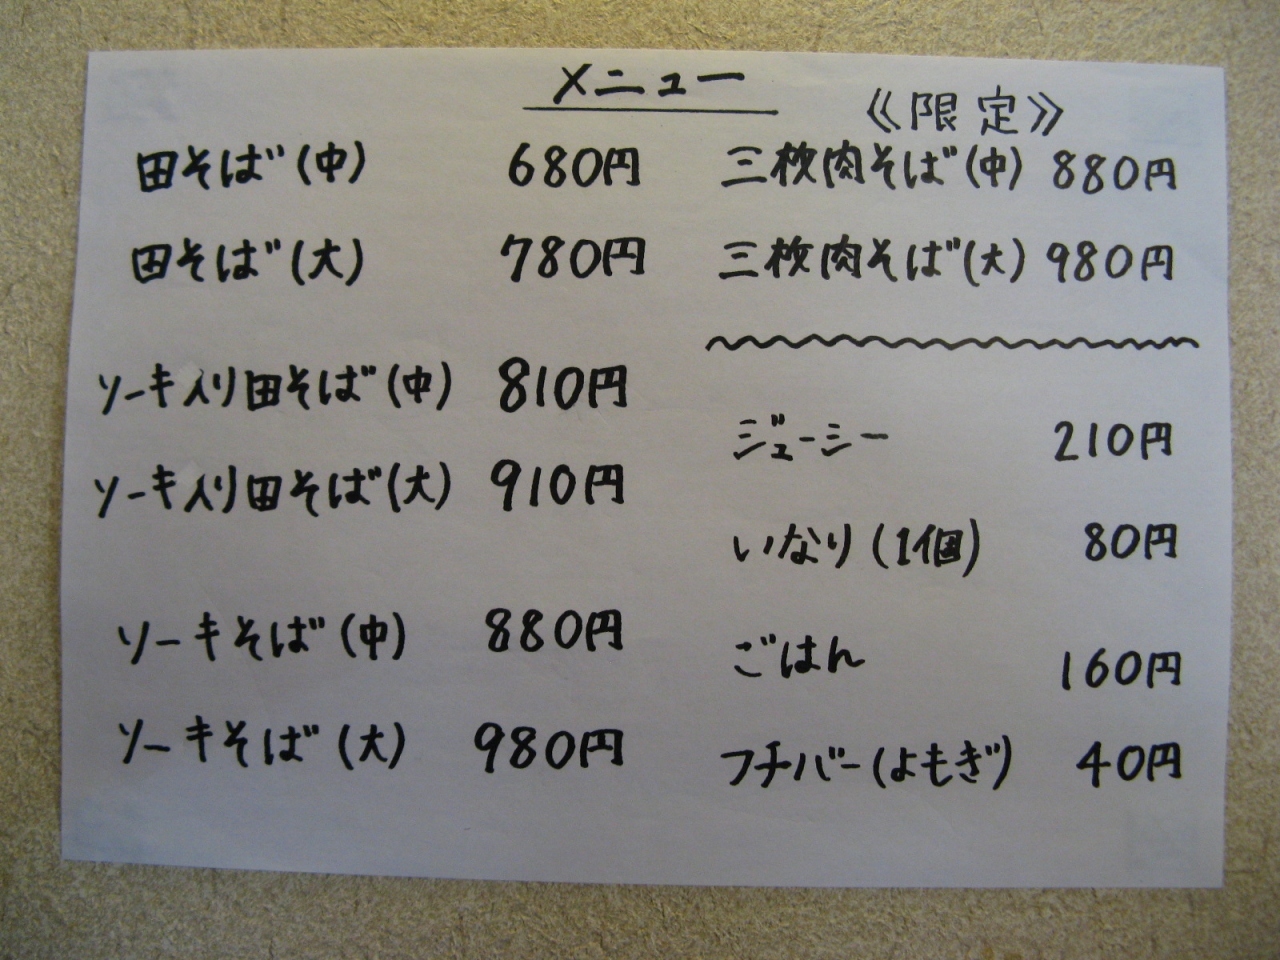 メニュー
田そば(中) 680円
田そば(大) 780円
ソーキ入り田そば(中) 810円
ソーキ入り田そば(大) 910円
ソーキそば(中) 880円
ソーキそば(大) 980円
《限定》
三枚肉そば(中) 880円
三枚肉そば(大) 980円
ジューシー 210円
いなり(1個) 80円
ごはん 160円
フチバー(よもぎ) 40円